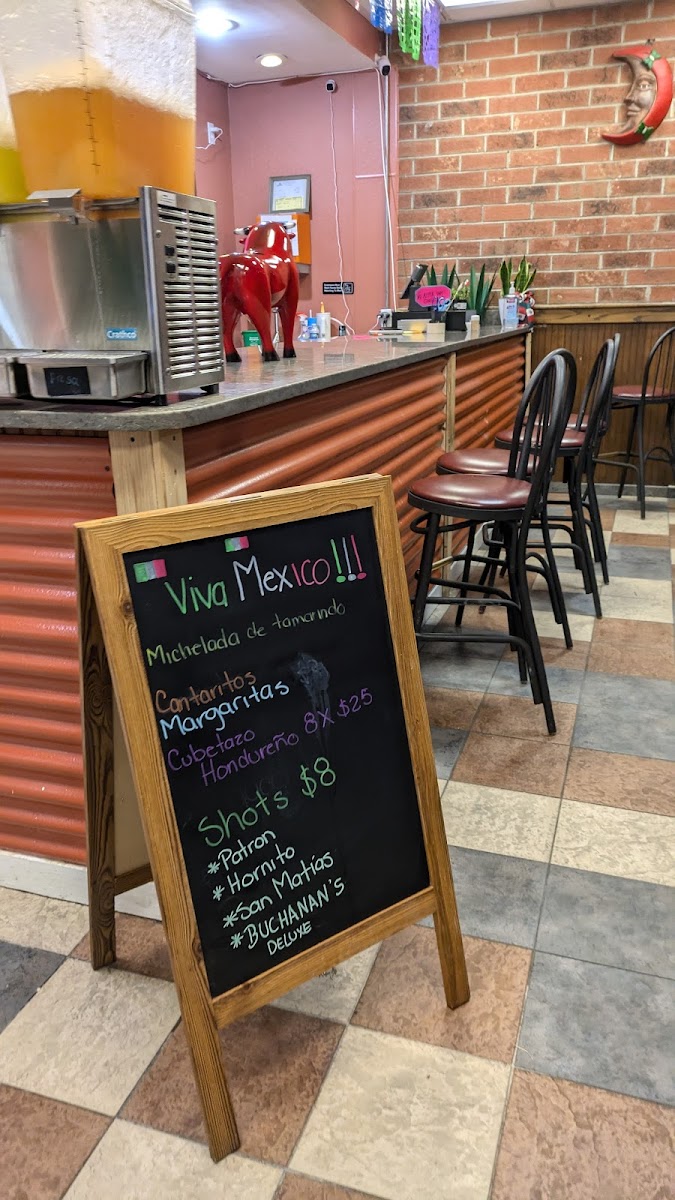 Crathco
Fresa
Viva Mexico!!!
Michelada de tamarindo
Cantaritos
Margaritas
Cubetazo
Hondureño 8 X $25
Shots $8
*Patron
*Hornito
*San Matias
*BUCHANAN'S
DELUXE